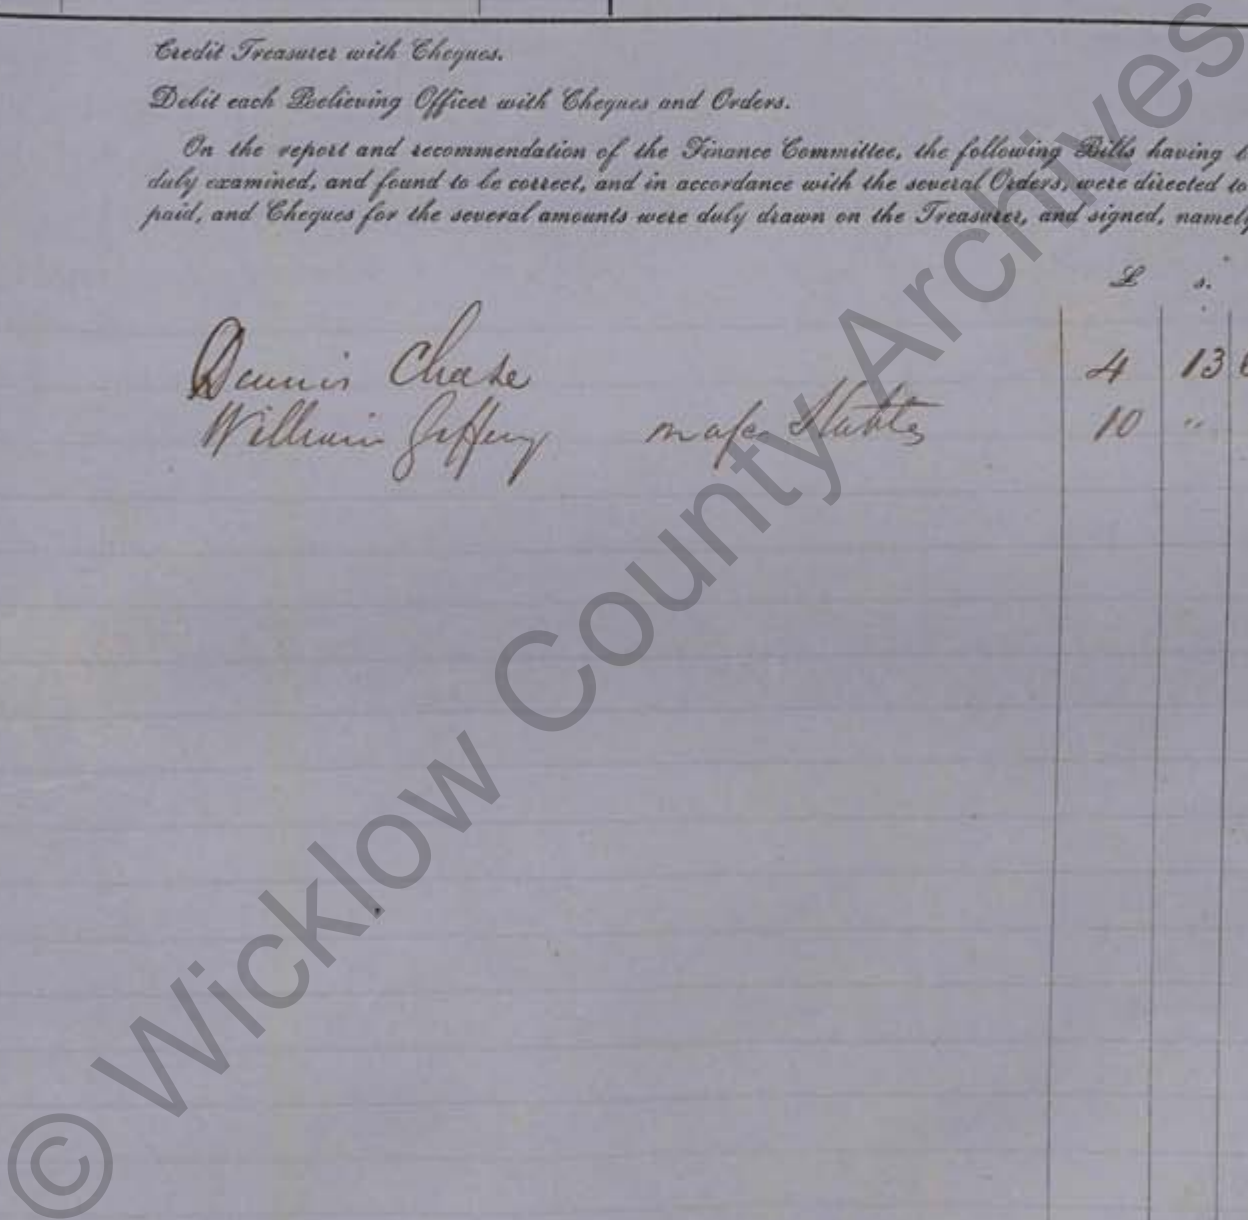 Credit Treasurer with Cheques.
Debit each Relieving Officer with Cheques and Orders.
On the report and recommendation of the Finance Committee, the following Bills having b
duly examined, and found to be correct, and in accordance with the several Orders, were directed to
paid, and Cheques for the several amounts were duly drawn on the Treasurer, and signed, namely
£ s.
Dennis Chase 4 13 6
William Jeffery 10 "
© Wicklow County Archives